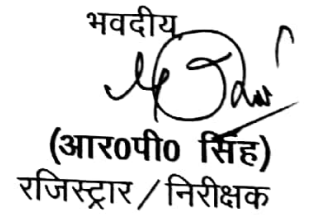 भवदीय
(आर0पी0 सिंह)
रजिस्ट्रार / निरीक्षक